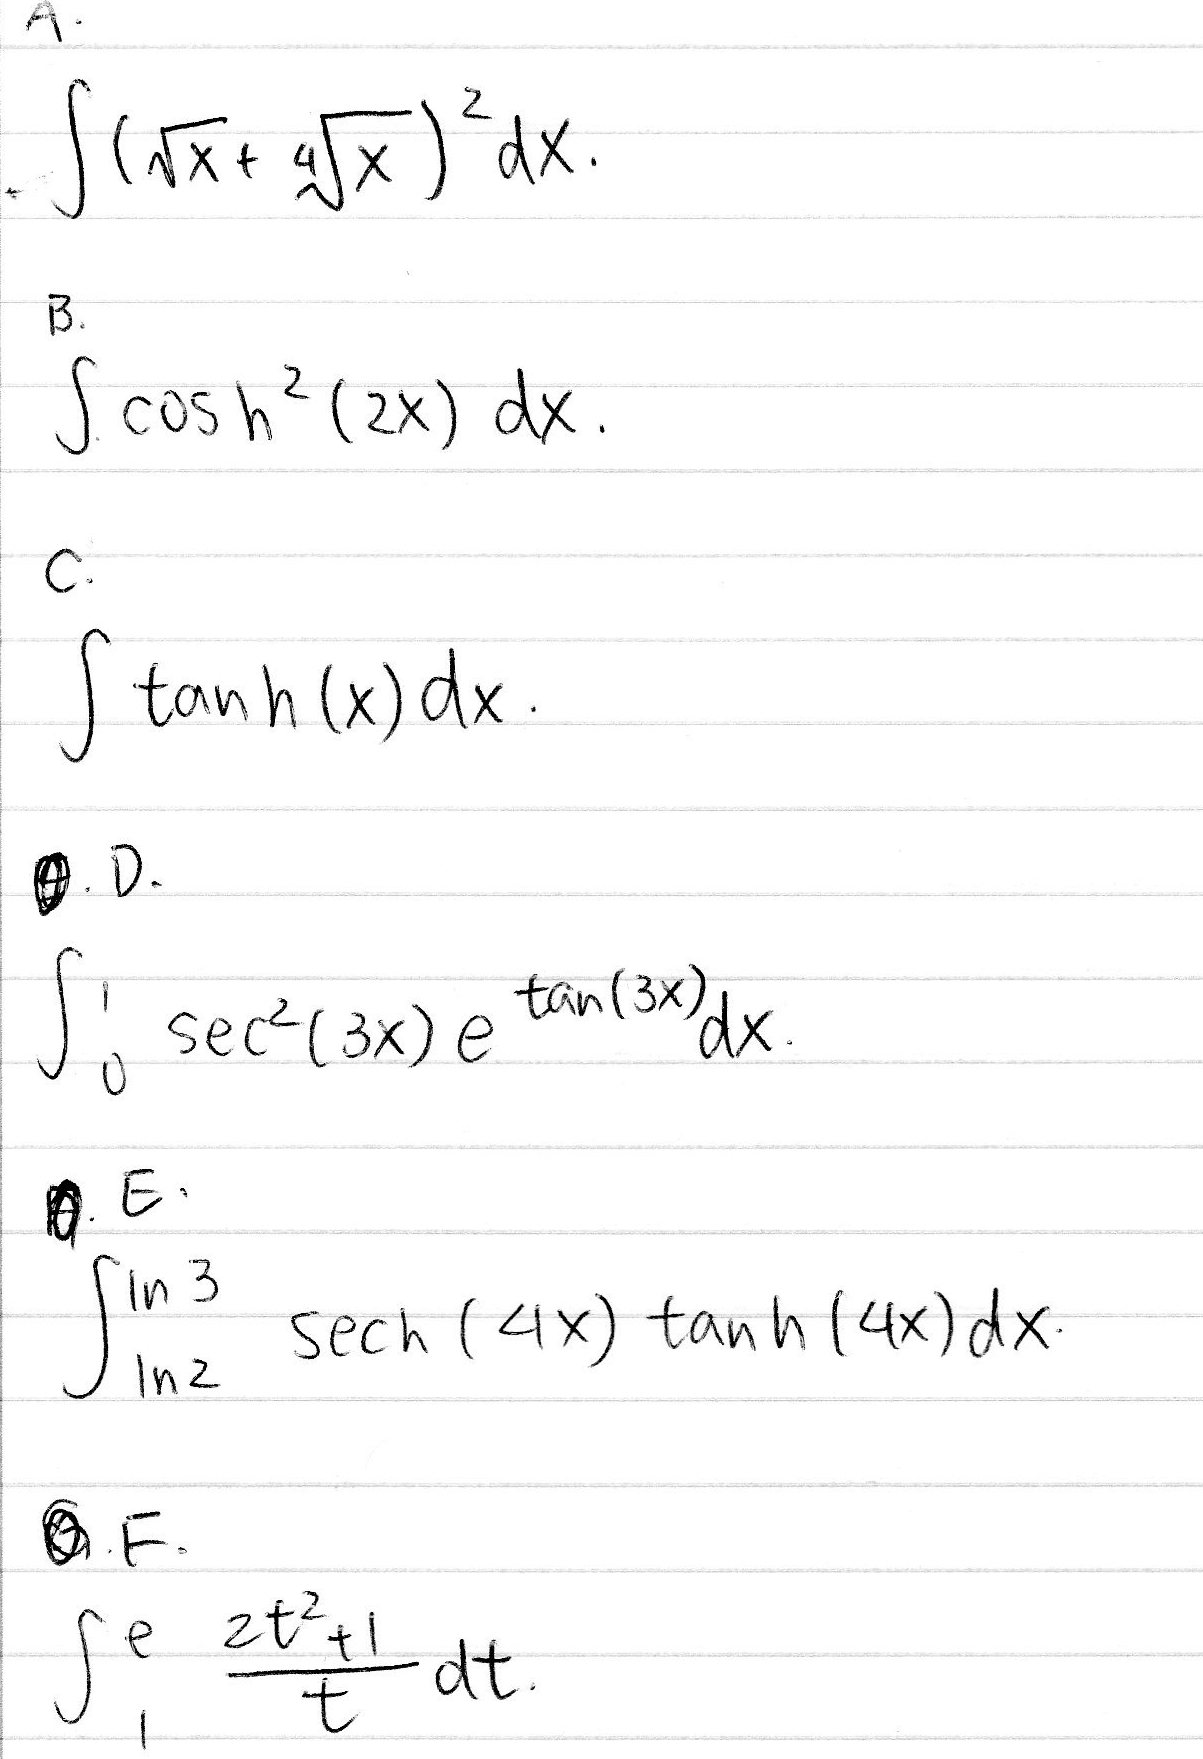 A.
∫(√x + ∜x)² dx.
B.
∫ cosh² (2x) dx.
C.
∫ tanh (x) dx.
. D.
∫₀¹ sec² (3x) e^tan(3x) dx.
. E.
∫_ln2^ln3 sech (4x) tanh (4x) dx.
. F.
∫₁^e (2t²+1)/t dt.